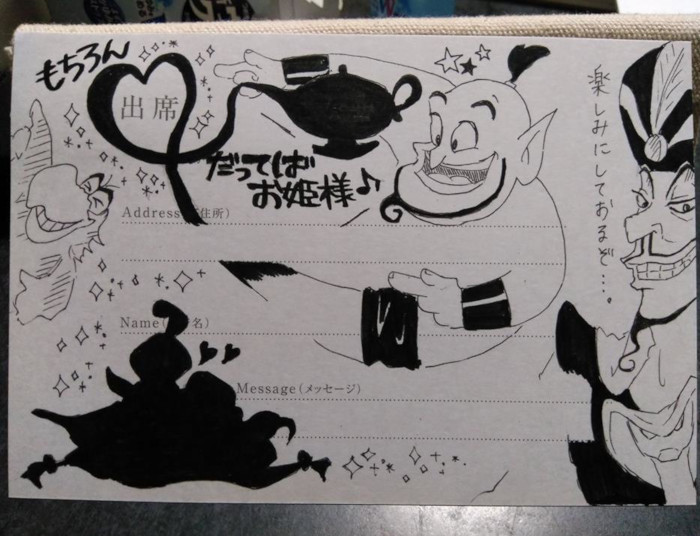 もちろん
出席
だってばお姫様♪
Address(ご住所)
Name(ご芳名)
Message(メッセージ)
楽しみにしておるぞ…。